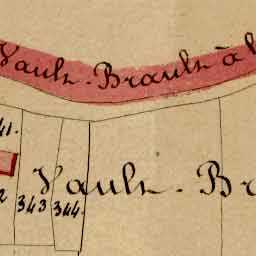 Vault-Brault à l
41.
Vault-Br
2 343 344.